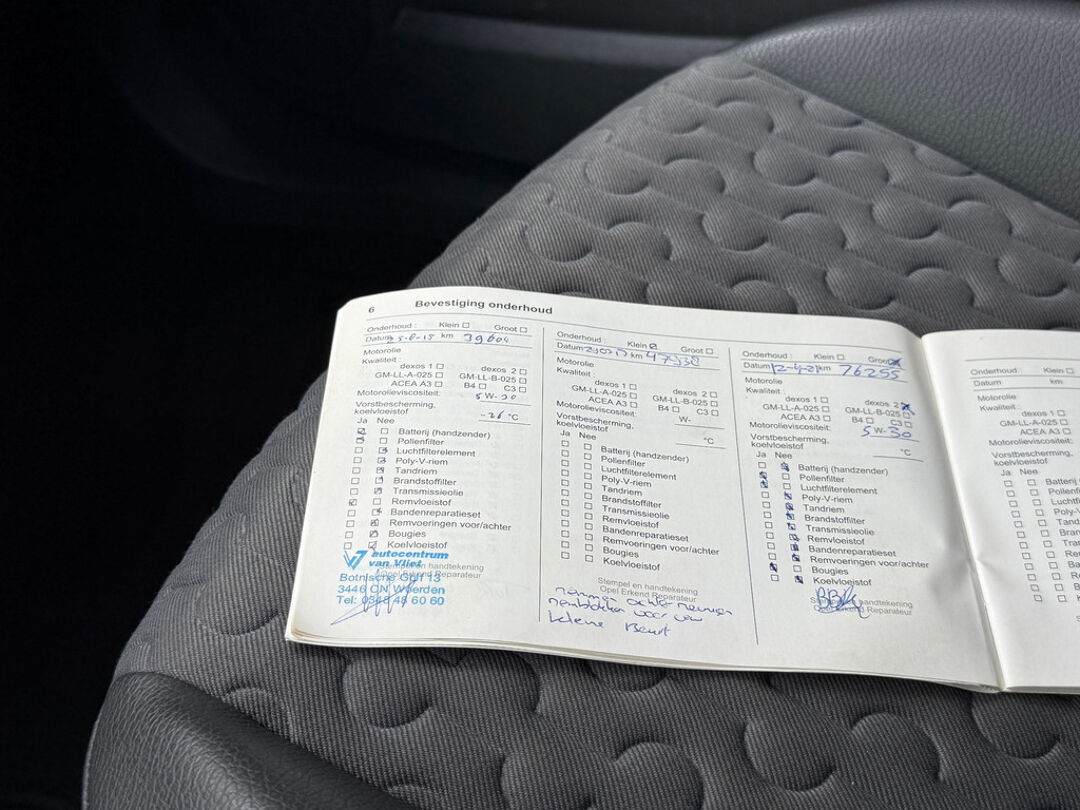 6 Bevestiging onderhoud
Onderhoud : Klein Groot
Datum km 39604
Motorolie
Kwaliteit :
dexos 1 dexos 2
GM-LL-A-025 GM-LL-B-025
ACEA A3 B4 C3
Motorolieviscositeit: 5 W-30
Vorstbescherming,
koelvloeistof -26 °C
Ja Nee
Batterij (handzender)
Pollenfilter
Luchtfilterelement
Poly-V-riem
Tandriem
Brandstoffilter
Transmissieolie
Remvloeistof
Bandenreparatieset
Remvoeringen voor/achter
Bougies
Koelvloeistof
autocentrum
van Vliet
Stempel en handtekening
Opel Erkend Reparateur
Botnische Golf 13
3446 CN Woerden
Tel: 0348 48 60 60
Onderhoud : Klein Groot
Datum km 47938
Motorolie
Kwaliteit :
dexos 1 dexos 2
GM-LL-A-025 GM-LL-B-025
ACEA A3 B4 C3
Motorolieviscositeit: W-
Vorstbescherming,
koelvloeistof °C
Ja Nee
Batterij (handzender)
Pollenfilter
Luchtfilterelement
Poly-V-riem
Tandriem
Brandstoffilter
Transmissieolie
Remvloeistof
Bandenreparatieset
Remvoeringen voor/achter
Bougies
Koelvloeistof
Stempel en handtekening
Opel Erkend Reparateur
remmen achter
remblokken voor
kleine Beurt
Onderhoud : Klein Groot
Datum 12-4-21 km 76255
Motorolie
Kwaliteit :
dexos 1 dexos 2
GM-LL-A-025 GM-LL-B-025
ACEA A3 B4 C3
Motorolieviscositeit: 5 W-30
Vorstbescherming,
koelvloeistof °C
Ja Nee
Batterij (handzender)
Pollenfilter
Luchtfilterelement
Poly-V-riem
Tandriem
Brandstoffilter
Transmissieolie
Remvloeistof
Bandenreparatieset
Remvoeringen voor/achter
Bougies
Koelvloeistof
Stempel en handtekening
Opel Erkend Reparateur
Onderhoud : Klein
Datum km
Motorolie
Kwaliteit :
dexos 1
GM-LL-A-025
ACEA A3
Motorolieviscositeit:
Vorstbescherming,
koelvloeistof
Ja Nee